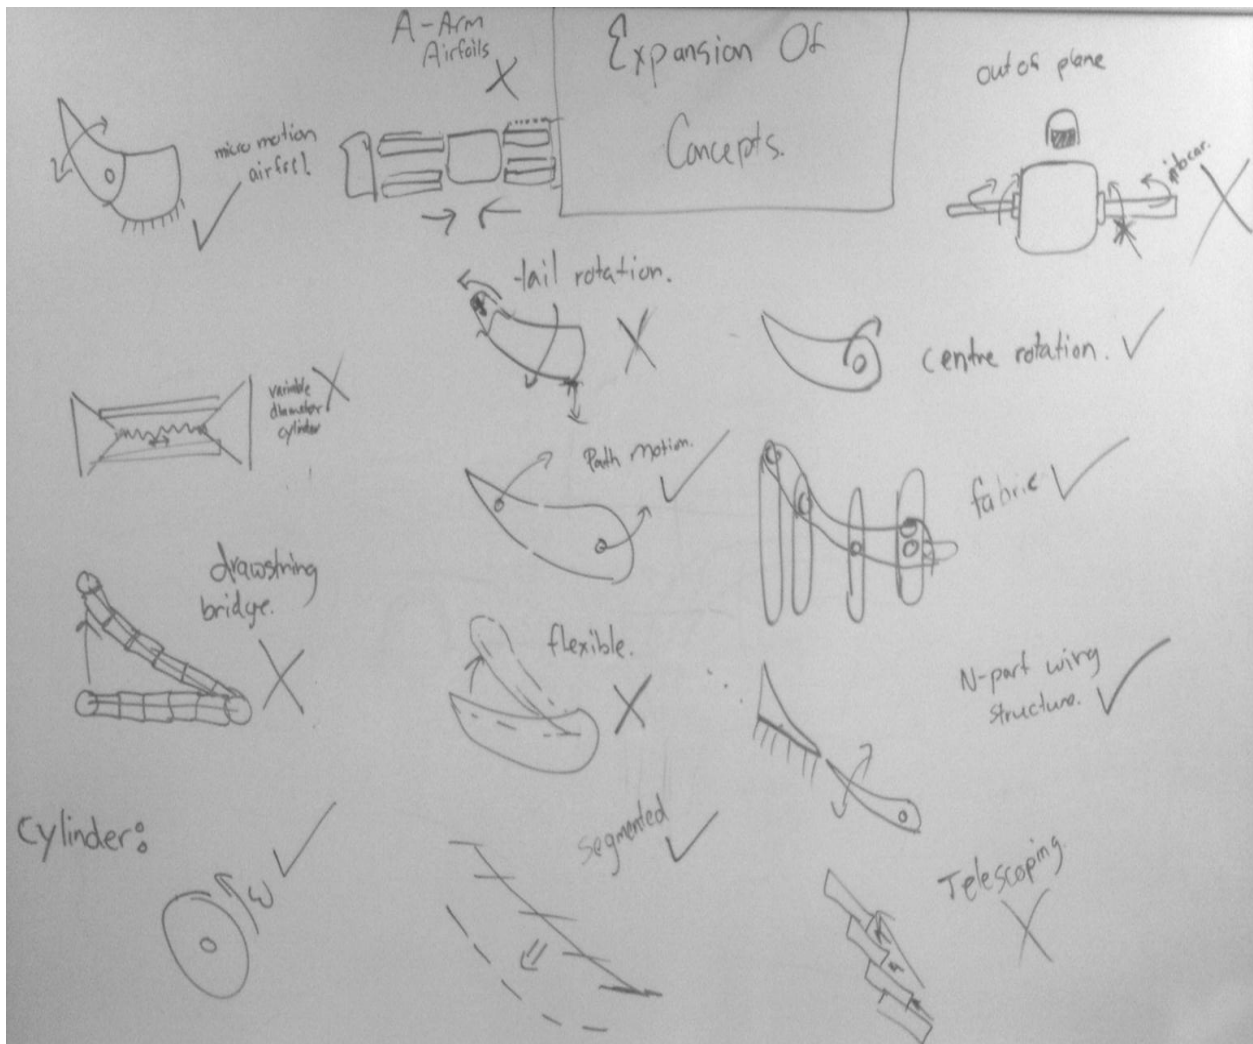 Expansion Of
Concepts.
A-Arm
Airfoils
X
out of plane
micro motion
airfoil
X
tail rotation.
X
centre rotation.
variable
diameter
cylinder
X
Path motion.
fabric
drawstring
bridge.
X
flexible.
X
N-part wing
structure.
Cylinder:
ω
segmented
Telescoping.
X